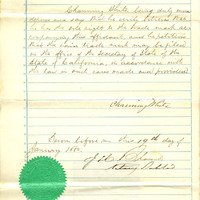 Channing White being duly
sworn and says that he verily believes that
he has the sole right to the trade mark
accompanying this affidavit and he petitions
that the said trade mark may be filed
in the office of the Secretary of State of the
State of California, in accordance with
the law in such cases made and provided
Channing White
Sworn before me this 19th day of
January 188
Notary Public